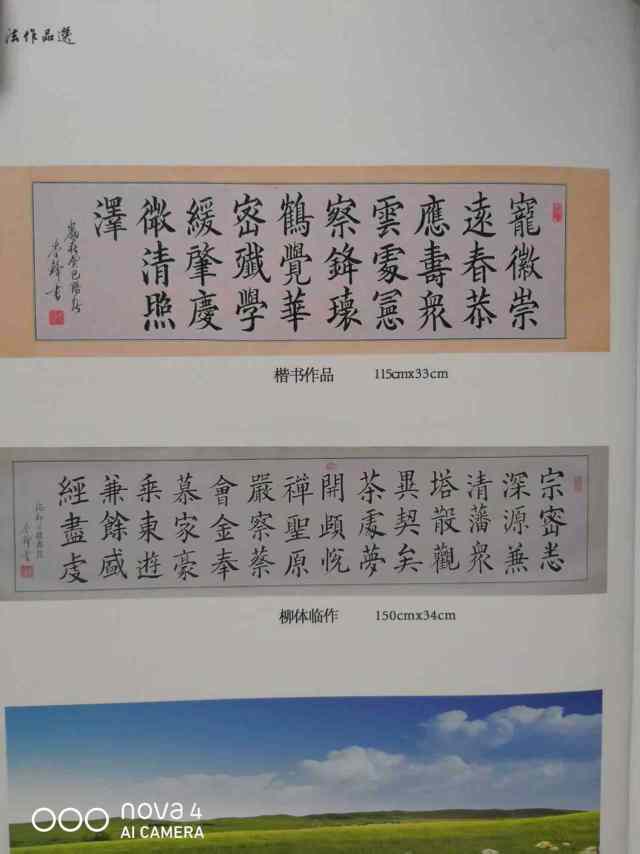 法作品選
寵徽崇
遠春恭
應壽衆
雲霧
察鋒瓌
鶴覺華
密殲學
緩肇慶
微清照
澤
春鋒書
楷书作品 115cmx33cm
宗密恙
深源無
清藩衆
塔散觀
異契矣
茶處夢
開頤悅
禪聖原
嚴察蔡
會金奉
慕家豪
乘東遊
兼餘感
經盡虔
柳体临作 150cmx34cm
nova 4
AI CAMERA